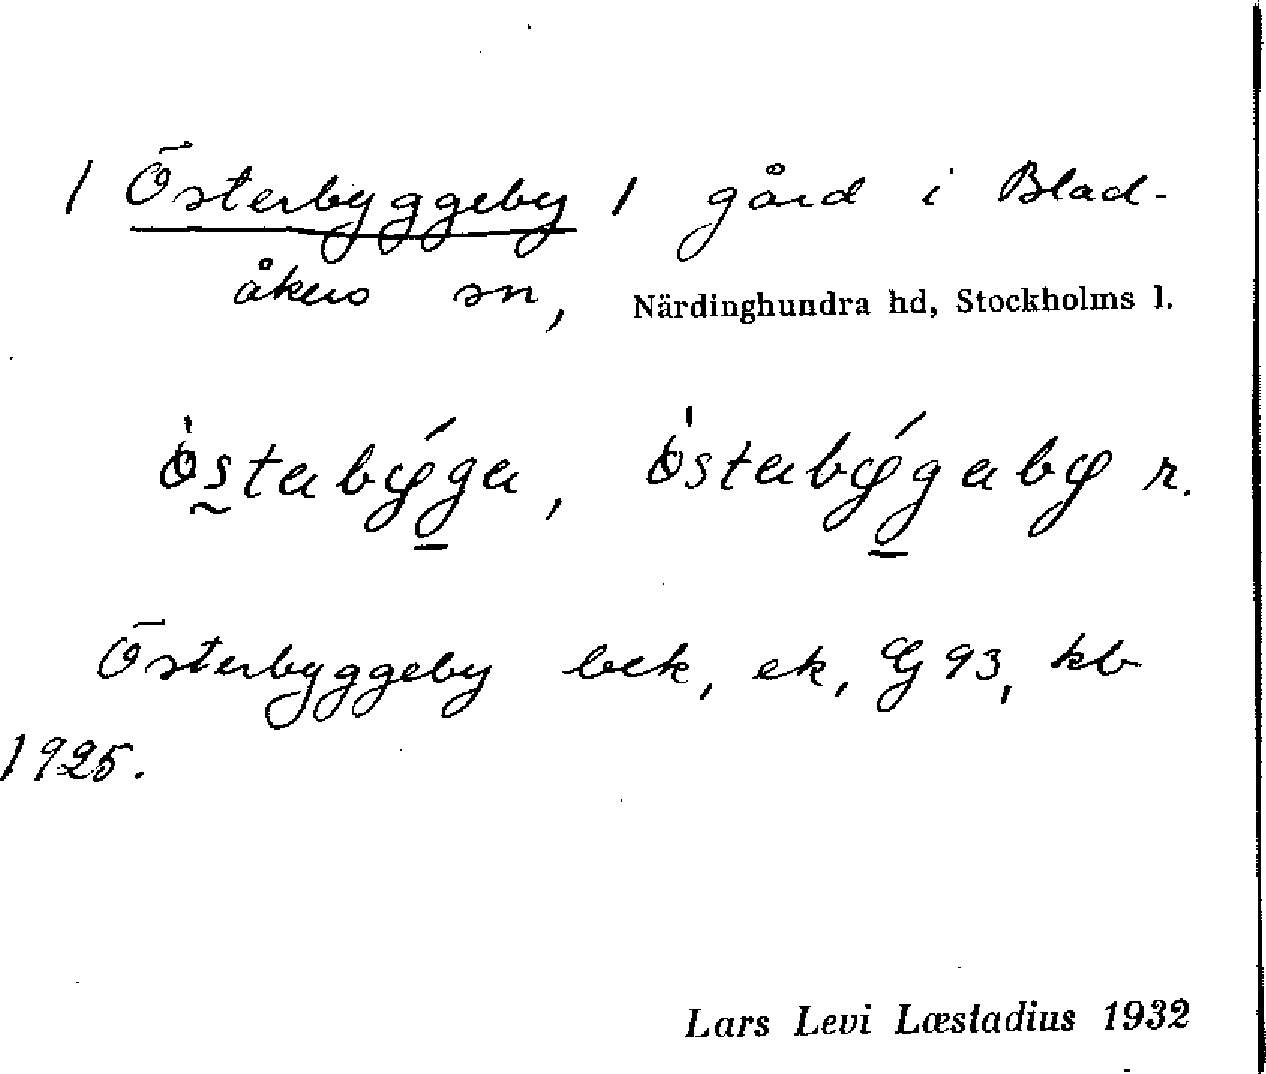 / Österbyggeby / gård i Blad-
åkers sn, Närdinghundra hd, Stockholms l.
östabýga, östabýgaby r.
Österbyggeby bek, ek, G 93, kb
1925.
Lars Levi Læstadius 1932